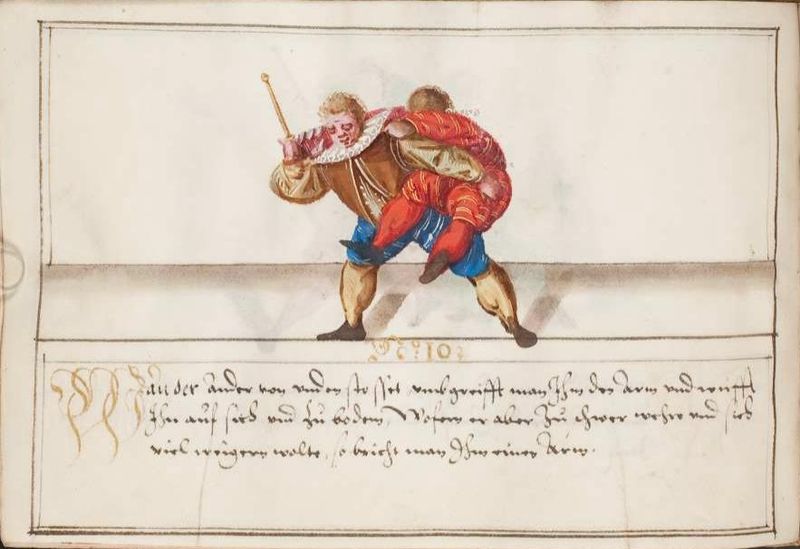 No: 10:
Wan der Ander von vnden stosset, vmbgreifft man Ihm den Arm vnd wirfft
Ihn auf sich vnd zu boden, Wofern er aber zu schwer wehre vnd sich
viel weigern wolte, so bricht man Ihm einen Arm.